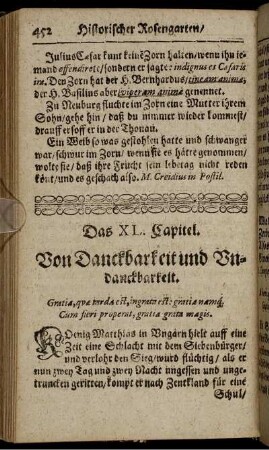 452 Historischer Rosengarten/
Julius Cæsar kunt keinē Zorn halten/wenn ihn ie-
mand offendirete/sondern er sagte: indignus es Cæsaris
ira. Den Zorn hat der H. Bernhardus/tineam animæ,
der H. Basilius aber/viperam animæ genennet.
Zu Neuburg fluchte im Zorn eine Mutter ihrem
Sohn/gehe hin/ daß du nimmer wieder kommest/
drauff ersoff er in der Thonau.
Ein Weib so was gestohlen hatte und schwanger
war/schwur im Zorn/ wenn sie es hätte genommen/
wolte sie/ daß ihre Frucht sein lebetag nicht reden
könt/und es geschach also. M. Creidius in Postil.
Das XL. Capitel.
Von Danckbarkeit und Vn-
danckbarkeit.
Gratia, quæ tarda est, ingrata est: gratia namq;
Cum fieri properat, gratia grata magis.
KOenig Matthias in Vngärn hielt auff eine
Zeit eine Schlacht mit dem Siebenbürger/
und verlohr den Sieg/wird flüchtig/ als er
nun zwey Tag und zwey Nacht ungessen und unge-
truncken geritten/kompt er nach Zenckland für eine
Schul/